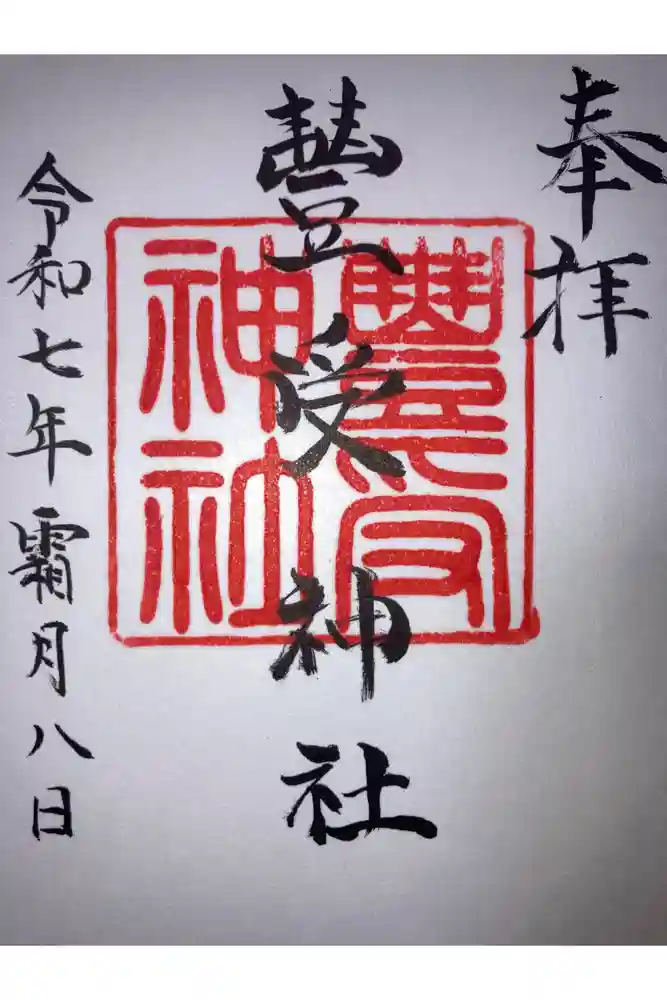 奉拝
豊受神社
豊受神社
令和七年霜月八日